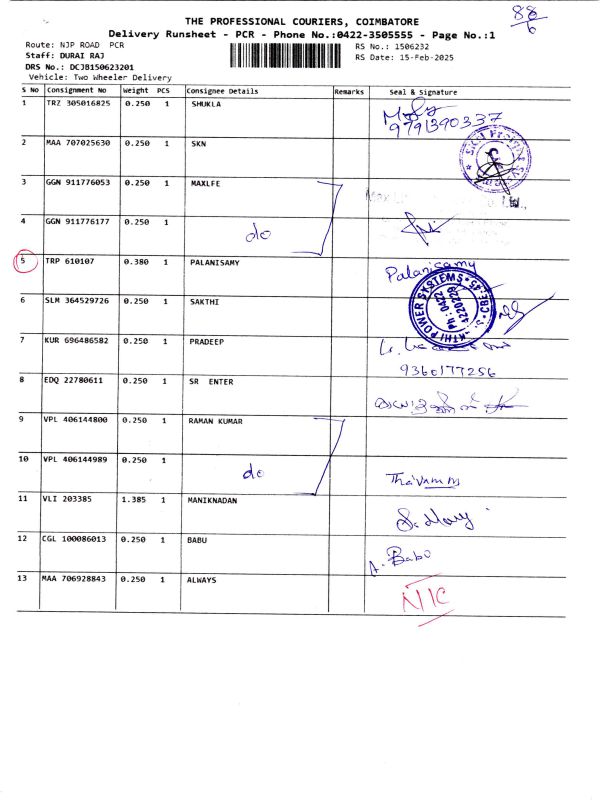 88
6
THE PROFESSIONAL COURIERS, COIMBATORE
Delivery Runsheet - PCR - Phone No.:0422-3505555 - Page No.:1
Route: NJP ROAD PCR
RS No.: 1506232
Staff: DURAI RAJ
RS Date: 15-Feb-2025
DRS No.: DCJB150623201
Vehicle: Two Wheeler Delivery
S No Consignment No Weight PCS Consignee Details Remarks Seal & Signature
1 TRZ 305016825 0.250 1 SHUKLA
9791390337
2 MAA 707025630 0.250 1 SKN
3 GGN 911776053 0.250 1 MAXLFE
4 GGN 911776177 0.250 1 do
5 TRP 610107 0.380 1 PALANISAMY Palanisamy
6 SLM 364529726 0.250 1 SAKTHI
SAKTHI POWER SYSTEMS * CBE-45 *
Ph : 0422
4220229
7 KUR 696486582 0.250 1 PRADEEP
9360177256
8 EDQ 22780611 0.250 1 SR ENTER
9 VPL 406144800 0.250 1 RAMAN KUMAR
10 VPL 406144989 0.250 1 do
11 VLI 203385 1.385 1 MANIKNADAN S. Mary
12 CGL 100086013 0.250 1 BABU A. Babu
13 MAA 706928843 0.250 1 ALWAYS N/C